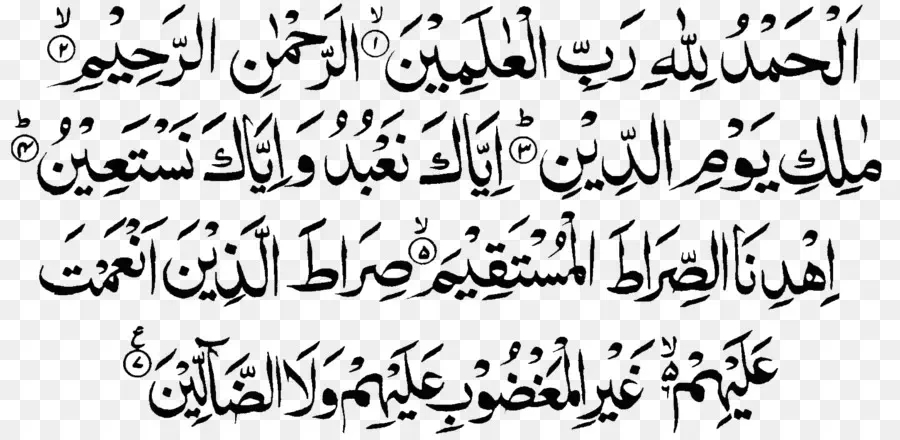 اَلْحَمْدُ لِلّٰهِ رَبِّ الْعٰلَمِيْنَ ۙ۱ الرَّحْمٰنِ الرَّحِيْمِ ۙ۲
مٰلِكِ يَوْمِ الدِّيْنِ ؕ۳ اِيَّاكَ نَعْبُدُ وَاِيَّاكَ نَسْتَعِيْنُ ؕ۴
اِهْدِنَا الصِّرَاطَ الْمُسْتَقِيْمَ ۙ۵ صِرَاطَ الَّذِيْنَ اَنْعَمْتَ
عَلَيْهِمْ ۙ۵ غَيْرِ الْمَغْضُوْبِ عَلَيْهِمْ وَلَا الضَّآلِّيْنَ ۧ۷